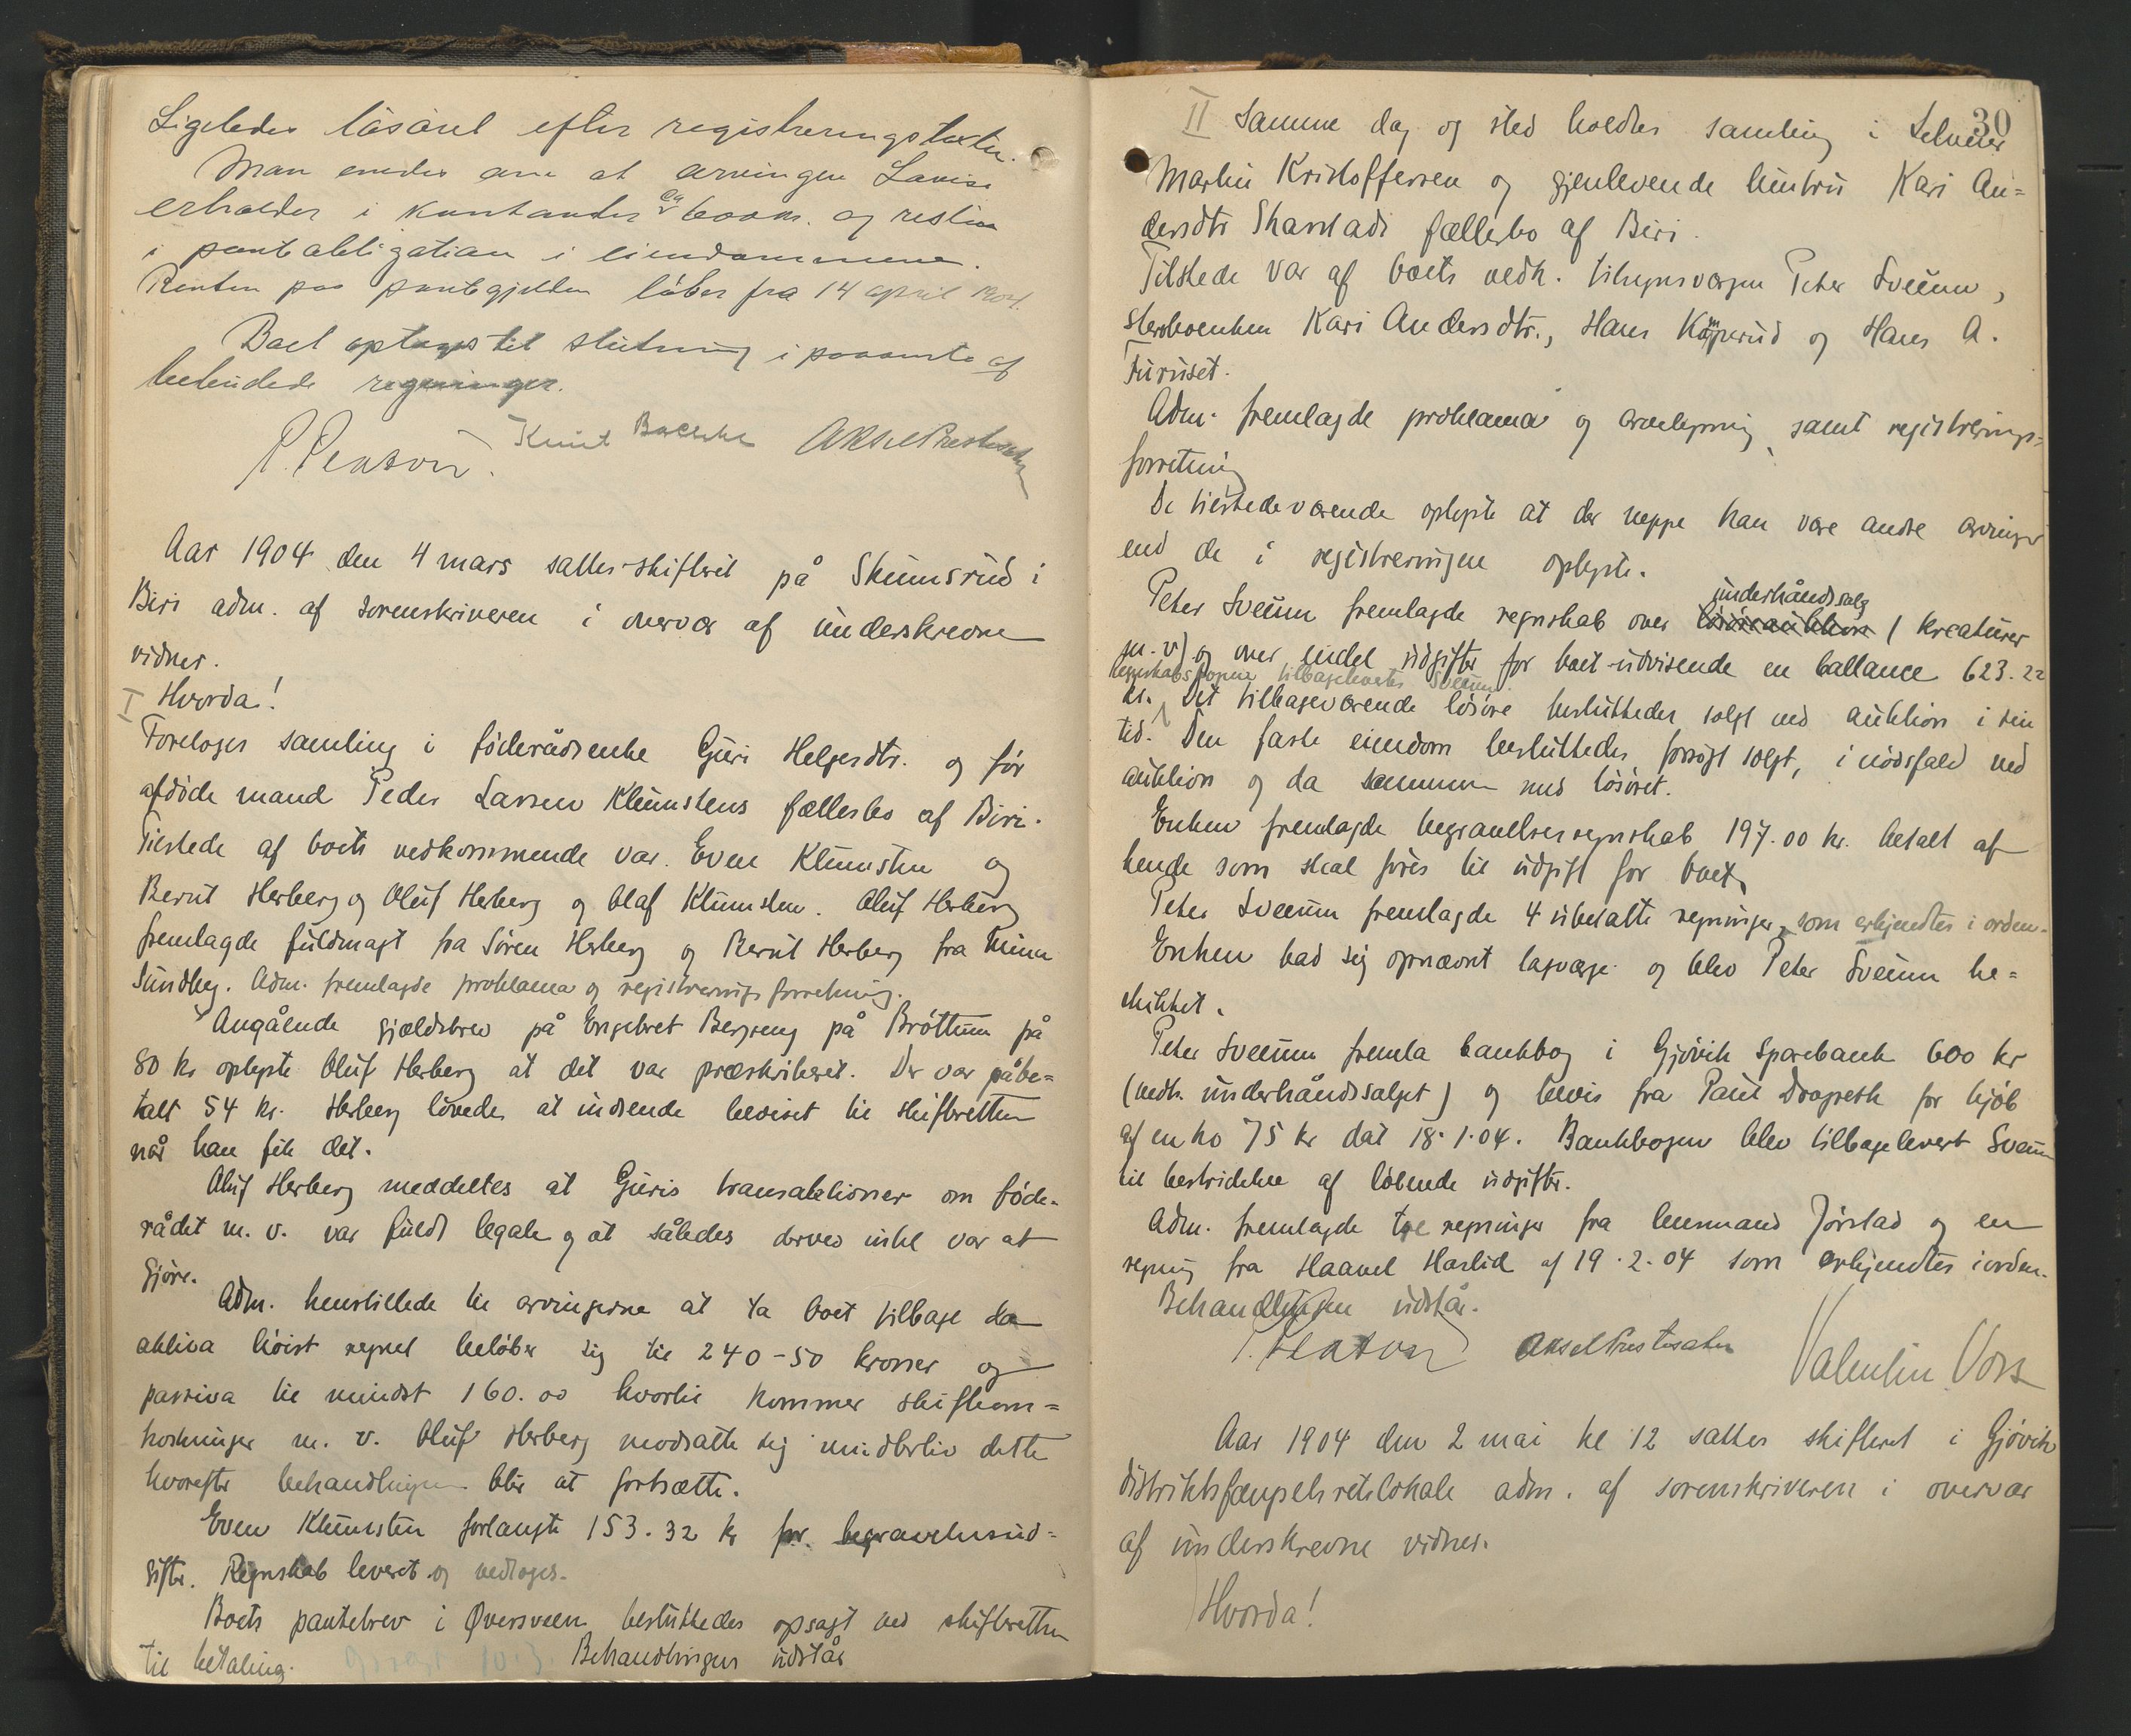 Ligeledes løsøret efter registreringstaxten.
Man enedes om at arvingen Lovise
erholder i kontanter ca 600 kr. og resten
i pantobligation i eiendommene.
Renten paa pantegjelden løber fra 14 april 1904.
Boet optages til slutning i paavente af
bebudede regninger.
P. Penson. Knut Baclske Aksel Prestesæter
Aar 1904 den 4 mars sattes skifteret på Skumsrud i
Biri adm. af sorenskriveren i overvær af underskrevne
vidner.
I Hvorda!
Foretoges samling i føderådsenke Guri Helgesdtr. og før
afdøde mand Peder Larsen Klumstens fællesbo af Biri.
Tilstede af boets vedkommende var Even Klumsten og
Bernt Herberg og Oluf Herberg og Olaf Klumsten. Oluf Herberg
fremlagde fuldmagt fra Søren Herberg og Bernt Herberg fra
Sundby. Adm. fremlagde proklama og registreringsforretning.
Angående gjældsbrev på Engebret Bergeng på Brøttum på
80 kr oplyste Oluf Herberg at det var præskriberet. Der var påbe=
talt 54 kr. Herberg lovede at indsende beviset til skifteretten
når han fik det.
Oluf Herberg meddeltes at Guris transaktioner om føde-
rådet m. v. var fuldt legale og at således derved intet var at
gjøre.
Adm. henstillede til arvingerne at ta boet tilbage da
aktiva høist regnet beløber sig til 240-50 kroner og
passiva til mindst 160.00 hvortil kommer skifteom=
kostninger m. v. Oluf Herberg modsatte sig imidlertid dette
hvorefter behandlingen blir at fortsætte.
Even Klumsten forlangte 153.32 kr for begravelsesud=
gifter. Regnskab leveret og vedtoges.
Boets pantebrev i Øversveen besluttedes opsagt ved skifteretten
til betaling. Opsagt 10.3. Behandlingen udstår
30
II Samme dag og sted holdtes samling i Selveier
Martin Kristoffersen og gjenlevende hustru Kari An=
dersdtr Skarstads fællesbo af Biri.
Tilstede var af boets vedk. tilsynsværgen Peter Sveum,
sterboenken Kari Andersdtr., Hans Kamperud og Hans A.
Furuset.
Adm. fremlagde proklama og arvelysning, samt registrerings=
forretning
De tilstedeværende oplyste at der neppe kan være andre arvinger
end de i registreringen oplyste.
underhåndssalg
Peter Sveum fremlagde regnskab over løsøreauktion (kreaturer
m. v) og over endel udgifter for boet udvisende en ballance 623.22
regnskabsbogen tilbageleverte Sveum.
kr. Det tilbageværende løsøre besluttedes solgt ved auktion i sin
tid. Den faste eiendom besluttedes forsøgt solgt, i nødsfald ved
auktion og da sammen med løsøret.
Enken fremlagde begravelsesregnskab 197.00 kr. betalt af
hende som skal føres til udgift for boet.
Peter Sveum fremlagde 4 ubetalte regninger, som erkjendtes i orden.
Enken bad sig opnævnt lagværge og blev Peter Sveum be=
skikket.
Peter Sveum fremla bankbog i Gjøvik Sparebank 600 kr
(vedk. underhåndssalget) og bevis fra Paul Dragseth for kjøb
af en ko 75 kr dat 18.1.04. Bankbogen blev tilbagelevert Sveum
til bestridelse af løbende udgifter.
Adm. fremlagde tre regninger fra lensmand Jørstad og en
regning fra Haavel Haslid af 19.2.04 som erkjendtes i orden.
Behandlingen udstår.
P. Penson Aksel Prestesæter Valentin Voss
Aar 1904 den 2 mai kl 12 sattes skifteret i Gjøvik
distriktsfængsels retslokale adm. af sorenskriveren i overvær
af underskrevne vidner.
Hvorda!